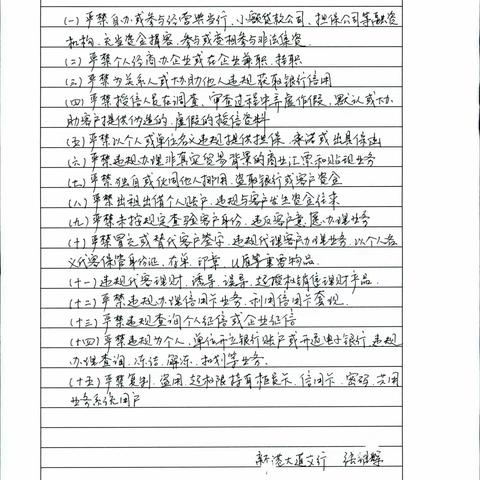 (一)严禁自办或参与经营典当行、小额贷款公司、担保公司等融资
机构,充当资金掮客,参与或变相参与非法集资.
(二)严禁个人经商办企业或在企业兼职、挂职
(三)严禁为关系人或协助他人违规获取银行信用
(四)严禁授信人员在调查、审查过程中弄虚作假,默认或协
助客户提供伪造的、虚假的授信资料
(五)严禁以个人或单位名义违规提供担保、承诺或出具保函
(六)严禁违规办理非真实贸易背景的商业汇票和贴现业务
(七)严禁独自或伙同他人挪用、盗取银行或客户资金
(八)严禁出租出借个人账户,违规与客户发生资金往来
(九)严禁未按规定查验客户身份、违反客户意愿办理业务
(十)严禁冒充或替代客户签字、违规代理客户办理业务,以个人名
义代客保管身份证、存单、印章、U盾等重要物品.
(十一)违规代客理财、诱导、误导、超授权销售理财产品.
(十二)严禁违规办理信用卡业务、利用信用卡套现.
(十三)严禁违规查询个人征信或企业征信
(十四)严禁违规为个人、单位开立银行账户或开通电子银行,违规
办理查询、冻结、解冻、扣划等业务.
(十五)严禁复制、盗用、超权限持有柜员卡、信用卡、密码、共用
业务系统用户
港大道支行